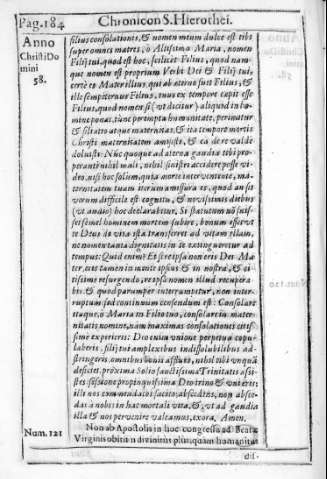 Pag. 184 Chronicon S. Hierothei.
Anno
Christi Do
mini
58.
filius consolationis, & nomen meum dulce est tibi
super omnes matres, ò Altissima Maria, nomen
Filij tui, quod est hoc, scilicet Filius, quod nam-
que nomen est proprium Verbi Dei & Filij tui,
certè et Mater illius, qui ab aterno fuit Filius, &
ille sempiternus Filius, tuus ex tempore capit esse
Filius, quod nomen si (vt dicitur) aliquid in ho-
mine ponat, tunc perempta humanitate, perimatur
& filiatio atque maternitas, & ita tempore mortis
Christi maternitatem amisisti, & ea de re valde
doluisti: Nũc quoque ad aterna gaudia tibi pro-
peranti nihil mali, nihil sinistri accidere posse vi-
deo, nisi hoc solum, quia morte interveniente, ma-
ternitatem tuam iterum amissura es, quod an sit
verum difficile est cognitu, & novissimis diebus
(vt audio) hoc declarabitur. Si statutum nõ fuis-
set semel hominem mortem subire, bonum esset vt
te Deus de vita ista transferret ad vitam illam,
ne momentanea dignitatis in te extingueretur ad
tempus: Quid enim? Et si re ipsa non eris Dei Ma-
ter, eris tamen in mente ipsius & in nostra, & ci-
tissime resurgendo, re ipsa nomen illud recupera
bis. & quod parumper interrumpitur, non inter-
ruptum sed continuum censendum est: Consolare
tu quoque, ò Maria in Filio tuo, consolare in mater-
nitatis nomine, nam maximas consolationes citis-
sime experieris: Deo enim vnione perpetua copu-
laberis, filij tui amplexibus indissolubilibus ad-
stringeris omnibus bonis affluens, nihil tibi vnquã
deficiet, próxima Solio sanctissima Trinitatis assi-
stes sessione propinquissima Deo trino & vni eris;
illi nos commendatos facito, abscedens, non absce-
das à nobis in hac mortali vita, &, vt ad gaudia
illa & nos pervenire valeamus, exora, Amen.
Num. 121 Non ab Apostolis in hoc congressu ad Beatæ
Virginis obitum divinitus plusquam humanitus
di-